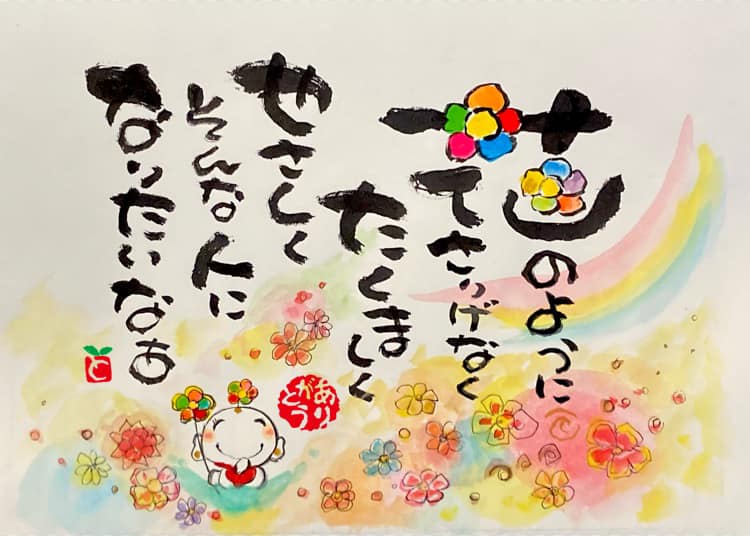 花のように
さりげなく
たくましく
やさしく
そんな人に
なりたいなあ
ありがとう
と